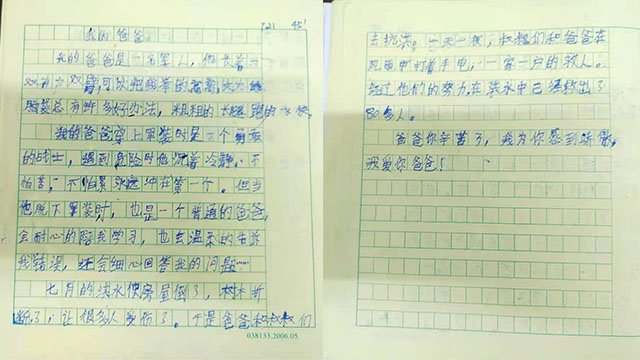 我的爸爸
我的爸爸是一名军人，他长着一
双
脑袋总有许多好办法，粗粗的长腿跑的
我的爸爸穿上军装时是一个勇敢
的战士，遇到危险时他沉着冷静，不
怕苦，不怕累永远冲在第一个。但当
他脱下军装时，也是一个普通的爸爸，
会耐心的陪我学习，也会温柔的
我错误，还会细心回答我的问题…
七月的洪水使房屋倒了，树木折
断了，让很多人受伤了。于是爸爸和叔叔们
038133.2006.05
去抗洪。一天一夜，叔叔们和爸爸在
风雨中打着手电，一家一户的救人。
经过他们的努力，在洪水中已经救出了
80多人。
爸爸你辛苦了，我为你感到骄傲，
我爱你爸爸！